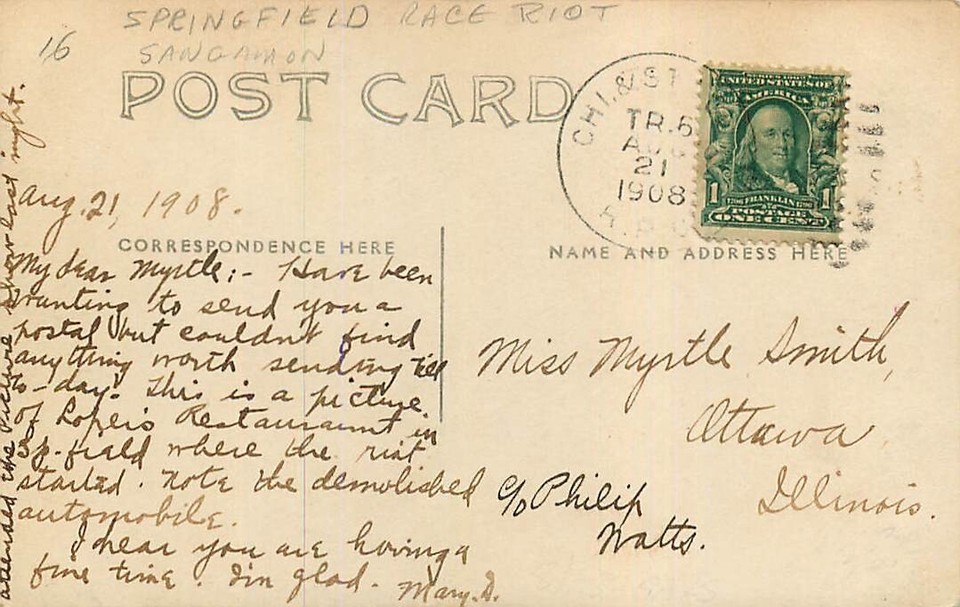 SPRINGFIELD RACE RIOT
16 SANGAMON
POST CARD
CHI. & ST
TR.6
AUG
21
1908
R.P.O.
SERIES 1902
UNITED STATES OF
AMERICA
1 1706 FRANKLIN 1790 1
POSTAGE
ONE CENT
Aug. 21, 1908.
CORRESPONDENCE HERE
NAME AND ADDRESS HERE
My dear Myrtle:- Have been
wanting to send you a
postal but couldn't find
anything worth sending till
to-day. This is a picture
of Loper's Restauraunt in
Sp-field where the riot
started. Note the demolished
automobile.
I hear you are having a
fine time. I'm glad. Mary. S.
attended the Picture Show last night.
Miss Myrtle Smith,
Ottawa
Illinois.
c/o Philip
Watts.